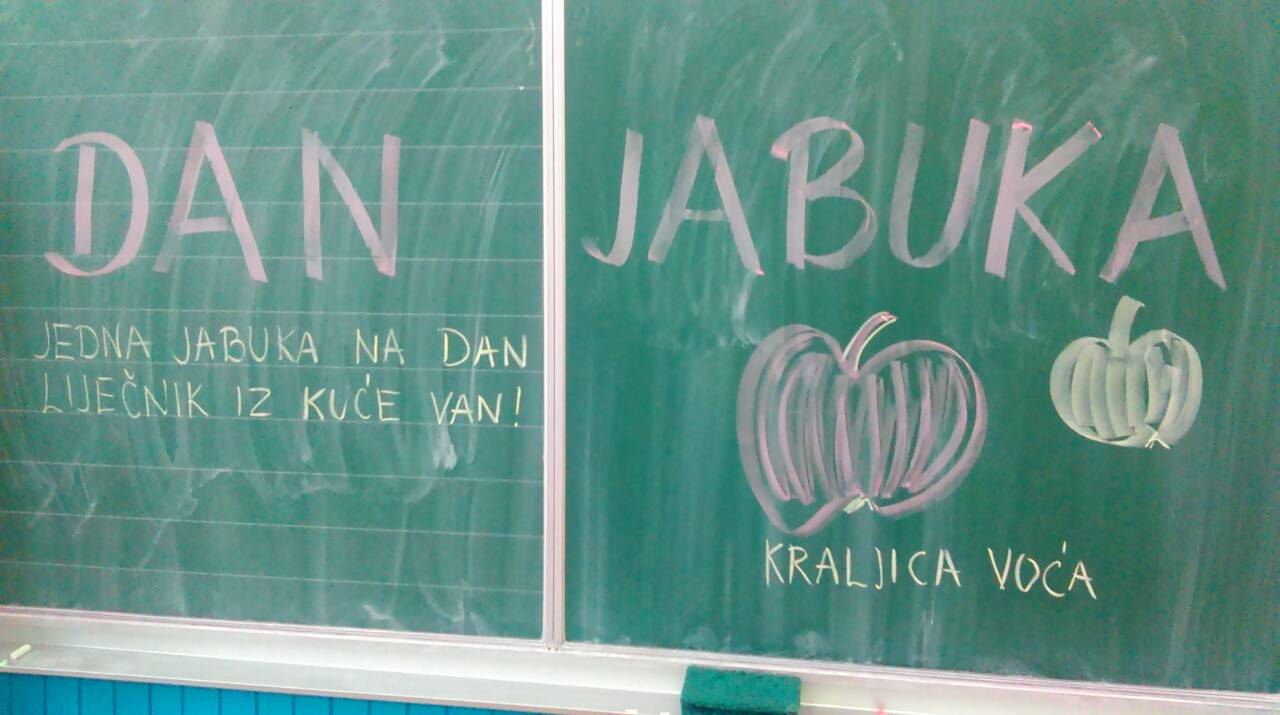 DAN JABUKA
JEDNA JABUKA NA DAN
LIJEČNIK IZ KUĆE VAN!
KRALJICA VOĆA